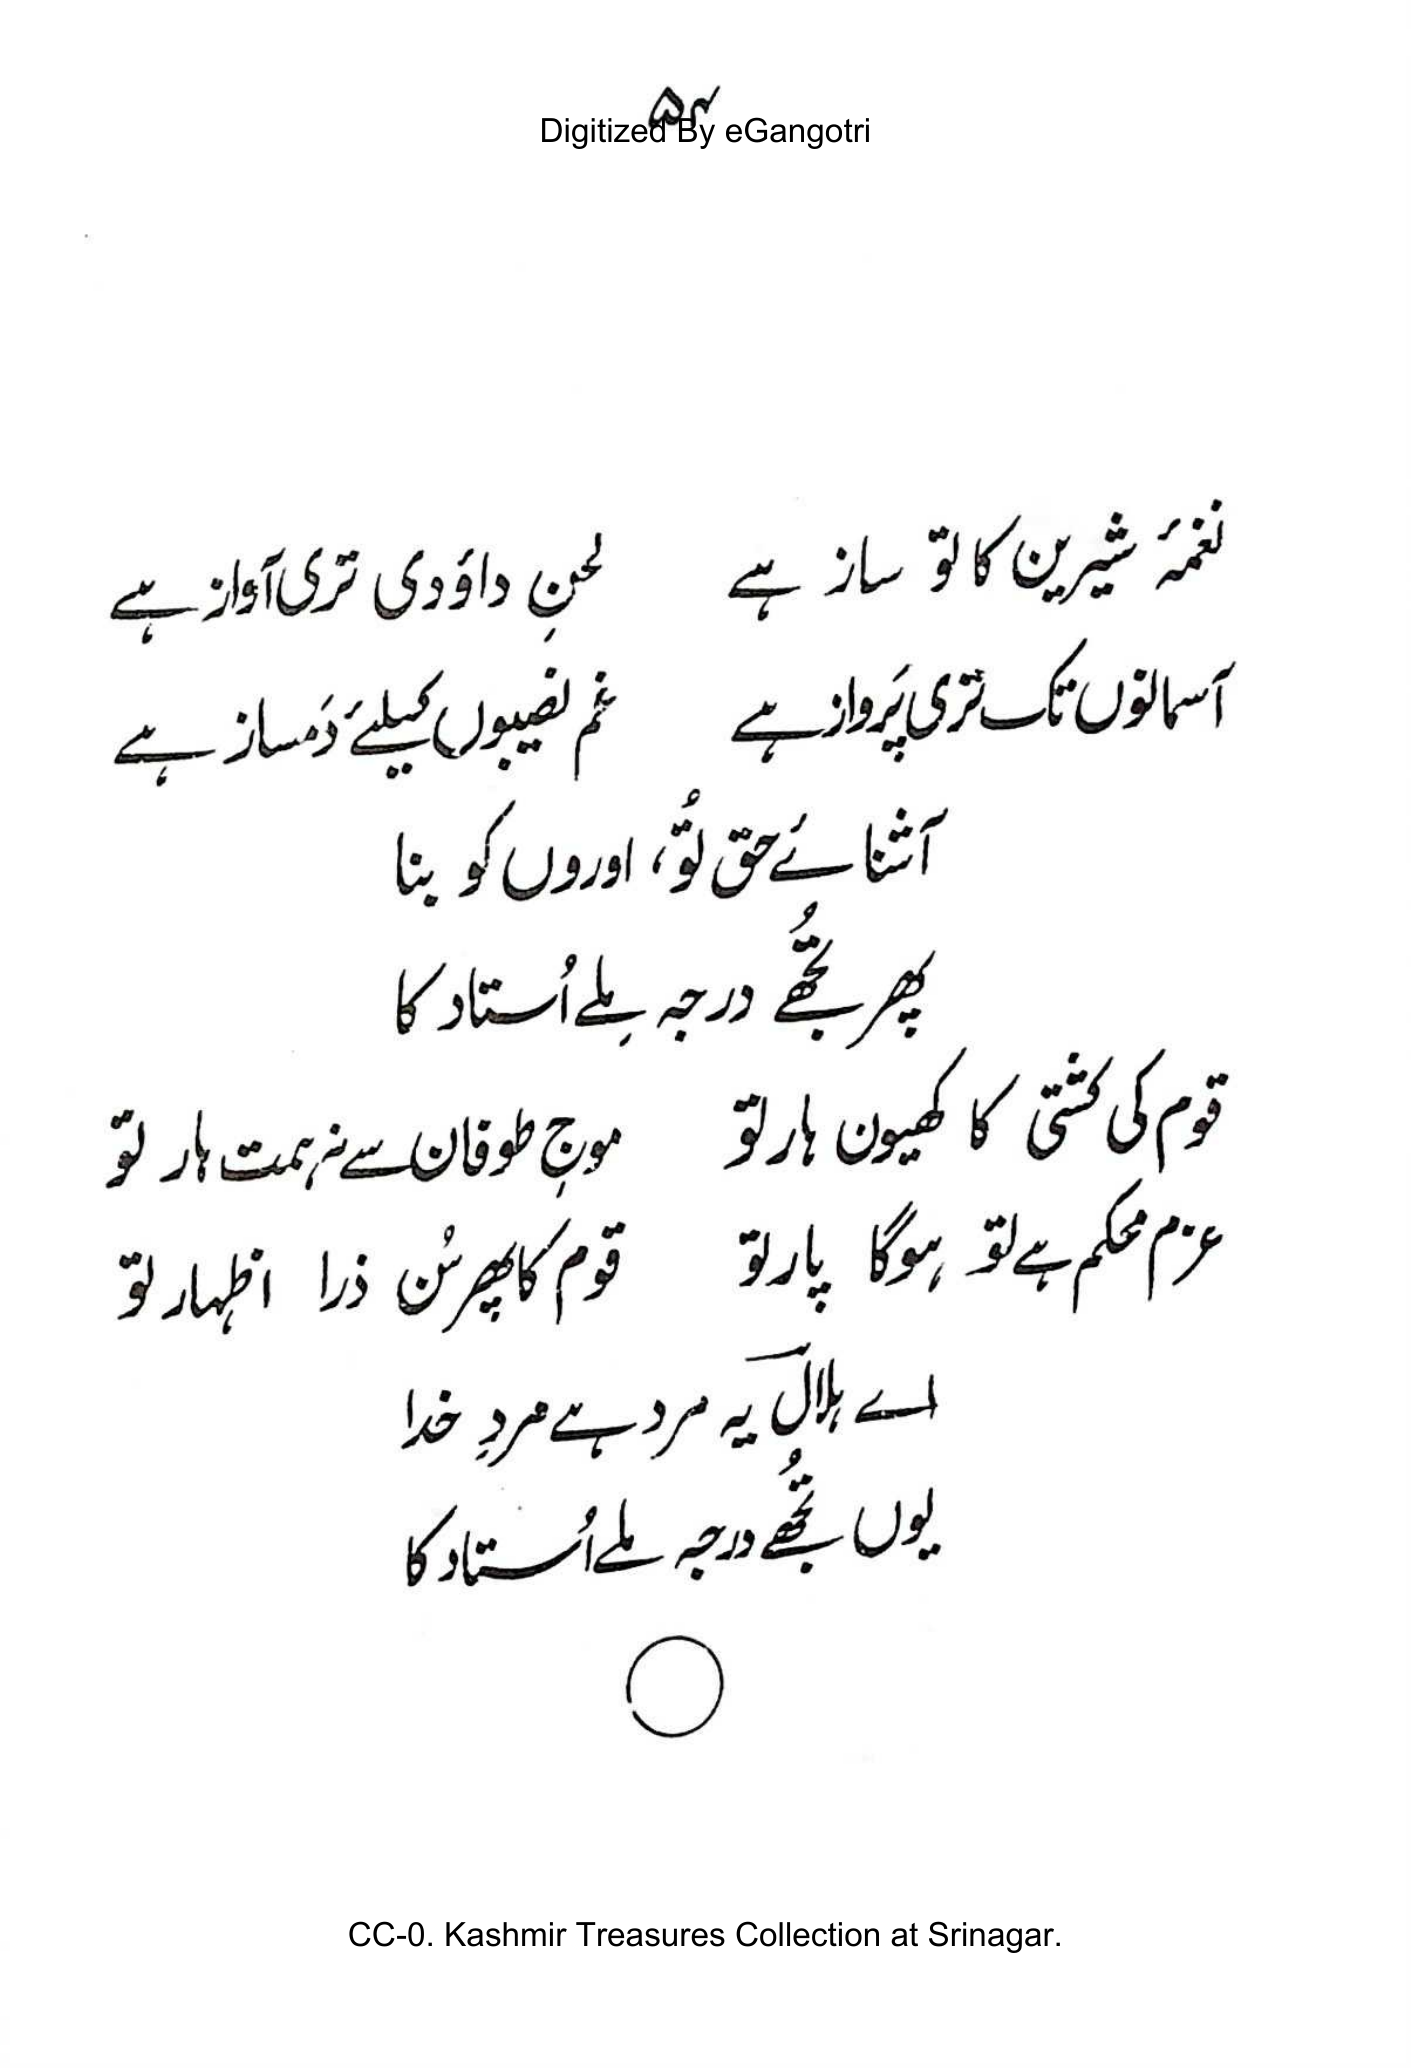 ۵۴
Digitized By eGangotri
نغمۂ شیرین کا تو ساز ہے لحنِ داؤدی تری آواز ہے
آسمانوں تک تری پَرواز ہے غم نصیبوں کیلئے دَمساز ہے
آشنائے حق تُو، اوروں کو بنا
پھر تُجھے درجہ مِلے اُستاد کا
قوم کی کشتی کا کھیون ہار تو موجِ طوفان سے نہ ہمت ہار تو
عزم محکم ہے تو ہوگا پار تو قوم کا پھر سُن ذرا اظہار تو
اے ہلالؔ یہ مرد ہے مردِ خدا
یوں تُجھے درجہ ملے اُستاد کا
CC-0. Kashmir Treasures Collection at Srinagar.